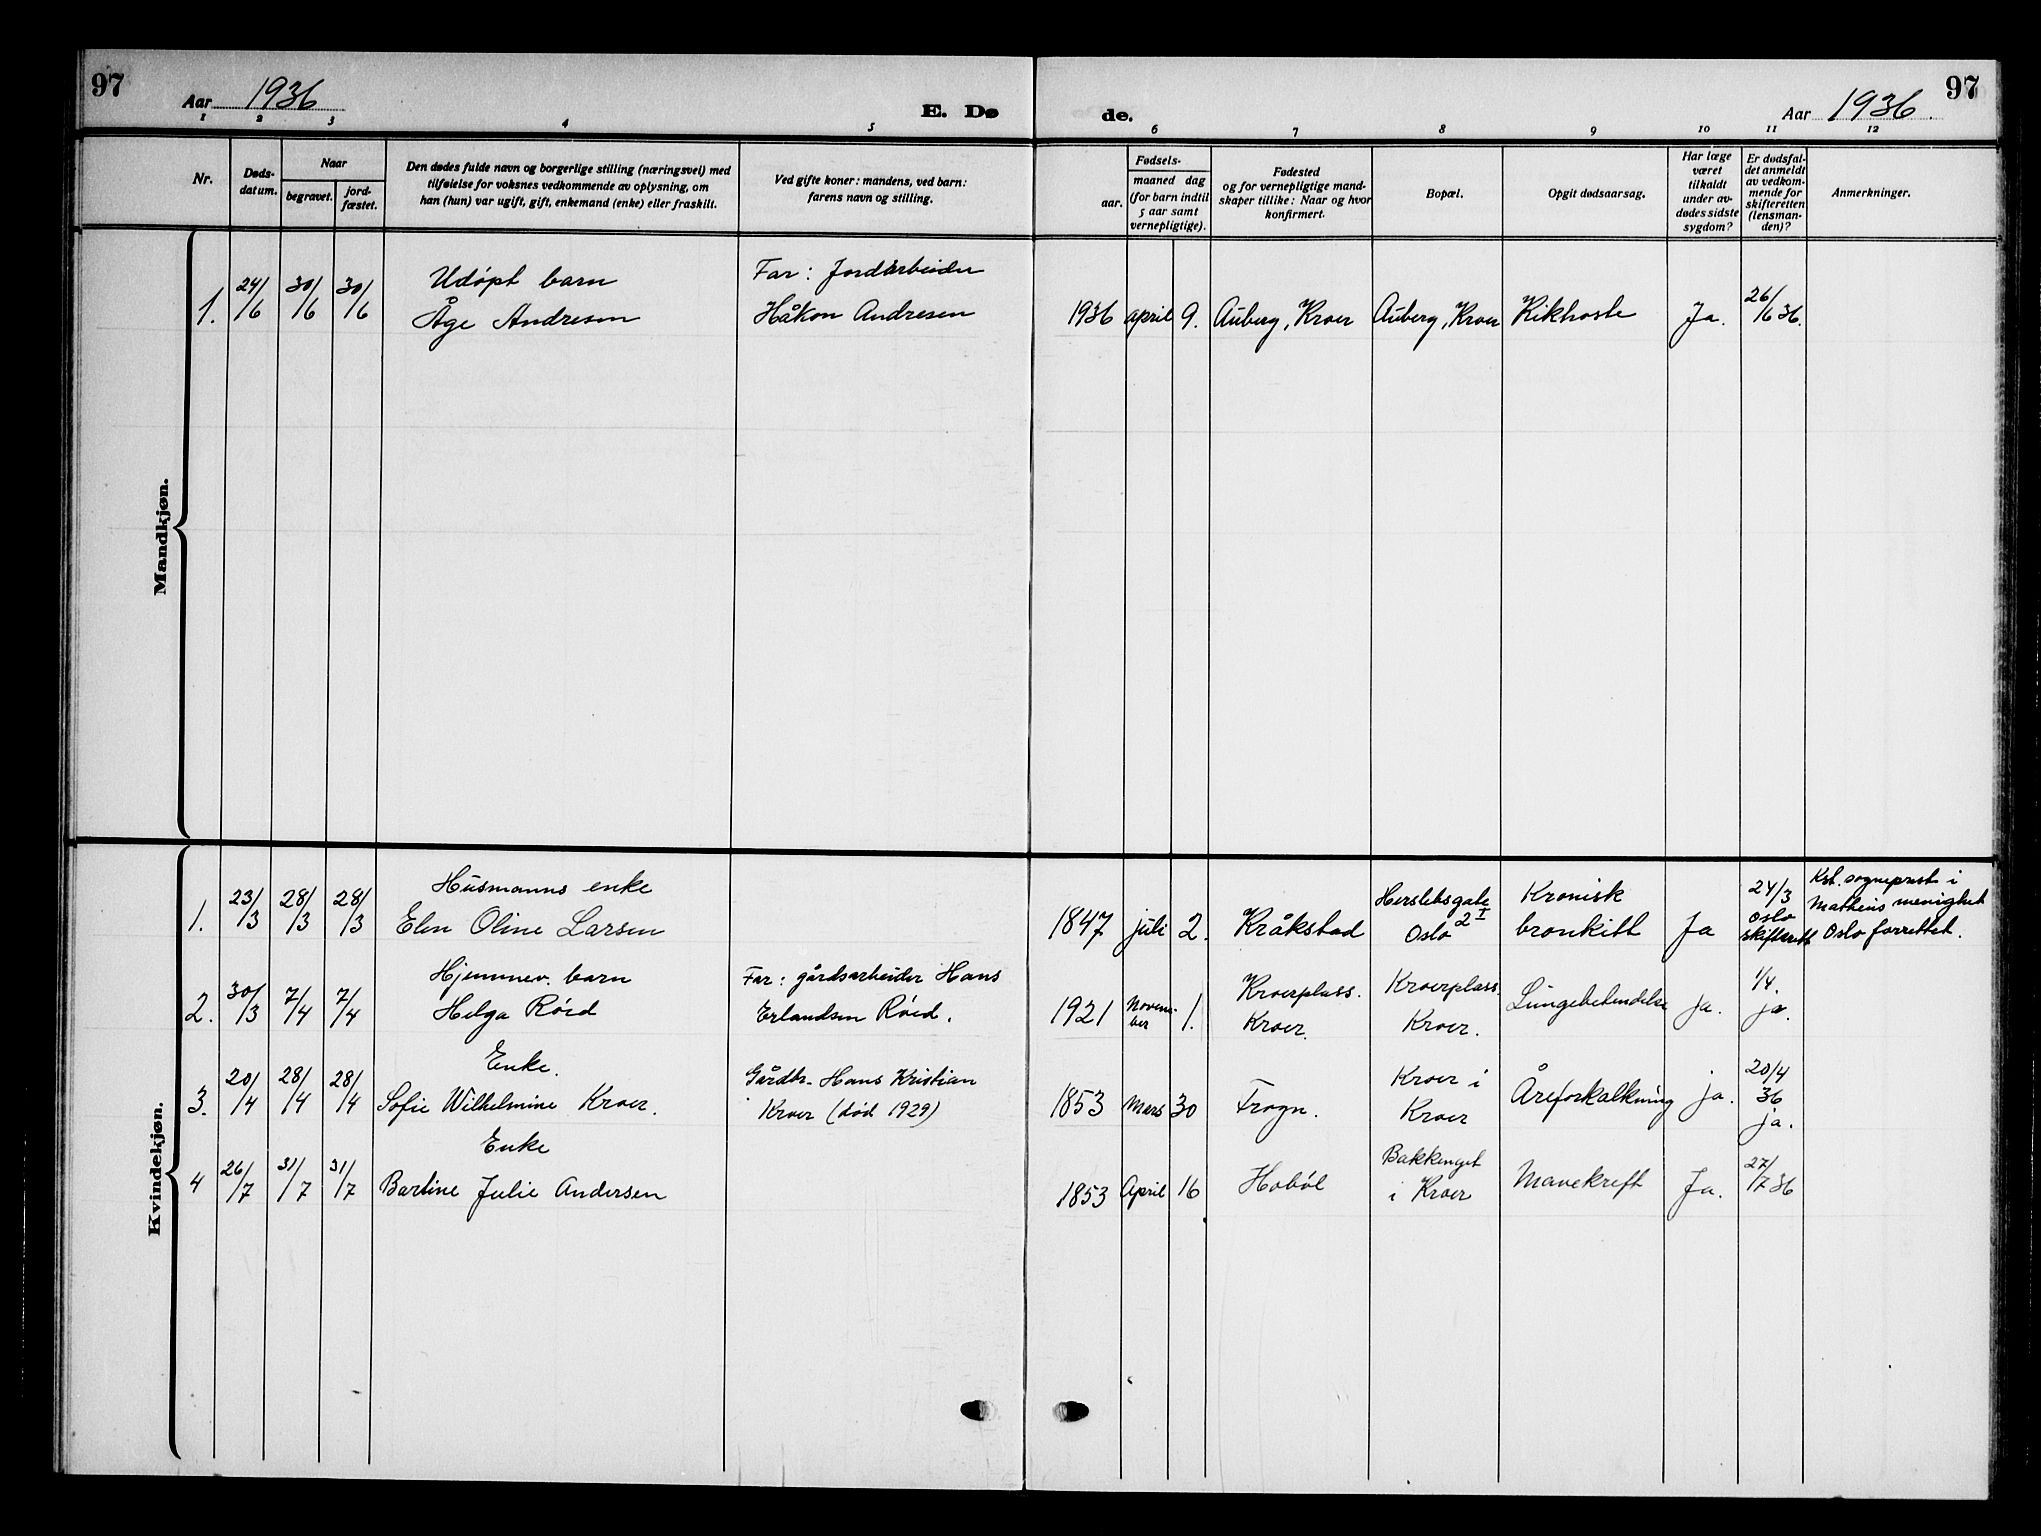 97
Aar 1936
E. Dø
de.
Aar 1936
97
1 2 3 4 5 6 7 8 9 10 11 12
Nr.
Døds-
datum.
Naar
begravet.
jord-
fæstet.
Den dødes fulde navn og borgerlige stilling (næringsvei) med
tilføielse for voksnes vedkommende av oplysning, om
han (hun) var ugift, gift, enkemand (enke) eller fraskilt.
Ved gifte koner: mandens, ved barn:
farens navn og stilling.
Fødsels-
aar.
maaned dag
(for barn indtil
5 aar samt
vernepligtige).
Fødested
og for vernepligtige mand-
skaper tillike: Naar og hvor
konfirmert.
Bopæl.
Opgit dødsaarsag.
Har læge
været
tilkaldt
under av-
dødes sidste
sygdom?
Er dødsfal-
det anmeldt
av vedkom-
mende for
skifteretten
(lensman-
den)?
Anmerkninger.
Mandkjøn.
1. 24/6 30/6 30/6
Udøpt barn
Åge Andresen
Far: Jordarbeider
Håkon Andresen
1936 april 9. Auberg, Kroer Auberg, Kroer Kikhoste Ja.
26/6 36.
Kvindekjøn.
1. 23/3 28/3 28/3
Husmanns enke
Elen Oline Larsen
1847 juli 2. Kråkstad
Herslebsgate
2 I
Oslo
Kronisk
bronkitt
Ja
24/3
Oslo
skifterett
Kst. sogneprest i
Matheus menighet
Oslo forrettet.
2. 30/3 7/4 7/4
Hjemmev. barn
Helga Röed
Far: gårdsarbeider Hans
Erlandsen Röed.
1921
Novem-
ber
1.
Kroerplass.
Kroer.
Kroerplass
Kroer.
Lungebetendelse ja.
1/4.
ja.
3. 20/4 28/4 28/4
Enke.
Sofie Wilhelmine Kroer.
Gårdbr. Hans Kristian
Kroer (död 1929)
1853 Mars 30 Frogn.
Kroer i
Kroer
Åreforkalkning ja.
20/4
36
ja.
4 26/7 31/7 31/7
Enke
Bartine Julie Andersen
1853 April 16 Hobøl
Bakkenget
i Kroer
Mavekreft Ja.
27/7 36